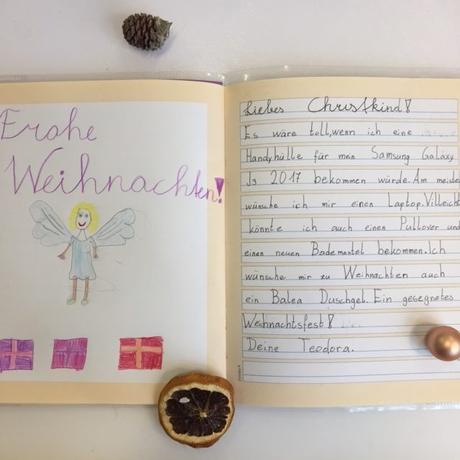 Frohe
Weihnachten!
Liebes Christkind!
Es wäre toll, wenn ich eine
Handyhülle für mein Samsung Galaxy
J3 2017 bekommen würde. Am meisten
wünsche ich mir einen Laptop. Villeicht
könnte ich auch einen Pullover und
einen neuen Bademantel bekommen. Ich
wünsche mir zu Weihnachten auch
ein Balea Duschgel. Ein gesegnetes
Weihnachtsfest!
Deine Teodora.